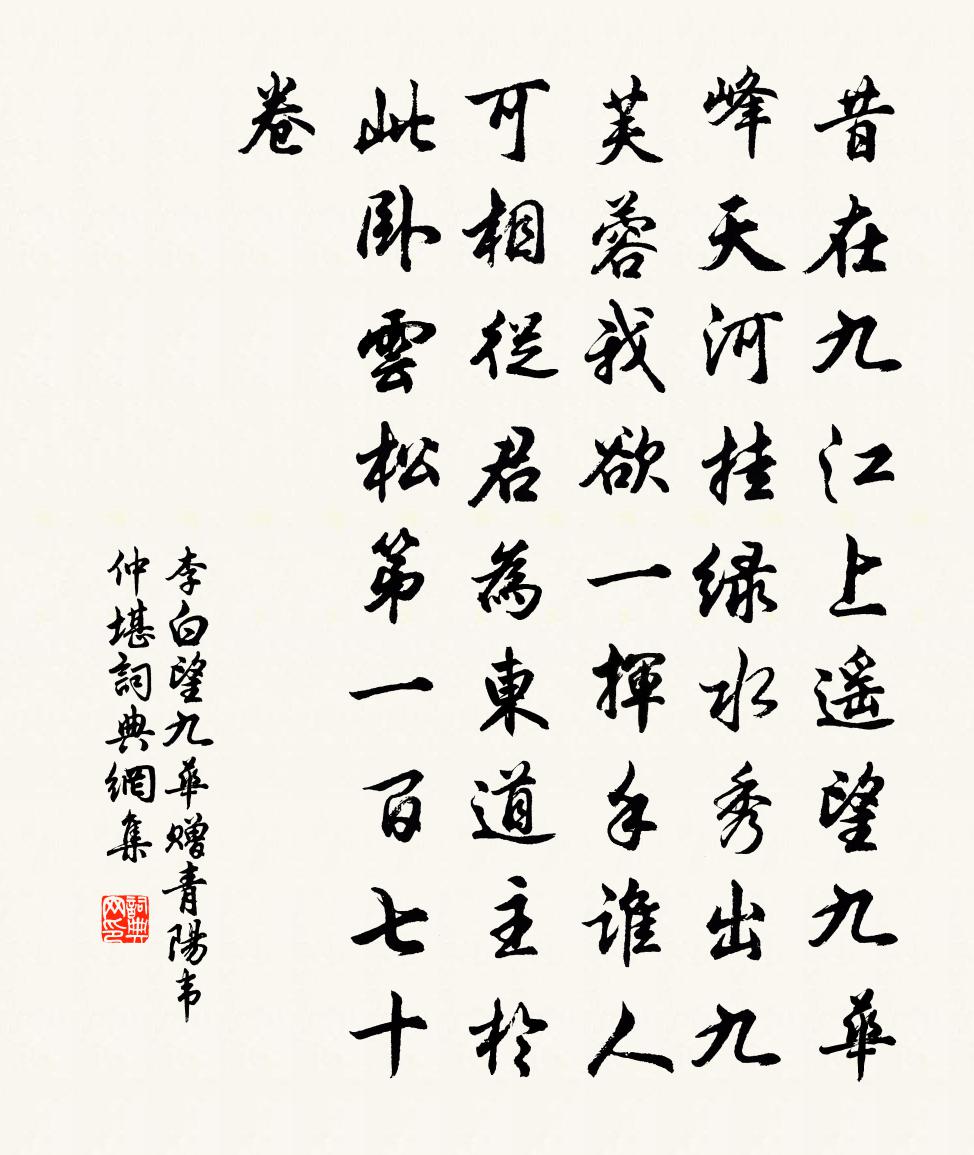 昔在九江上遥望九華
峰天河挂绿水秀出九
芙蓉我欲一揮手誰人
可相從君為東道主於
此卧雲松第一百七十
卷
李白望九華赠青陽韦
仲堪詞典網集
詞典网印